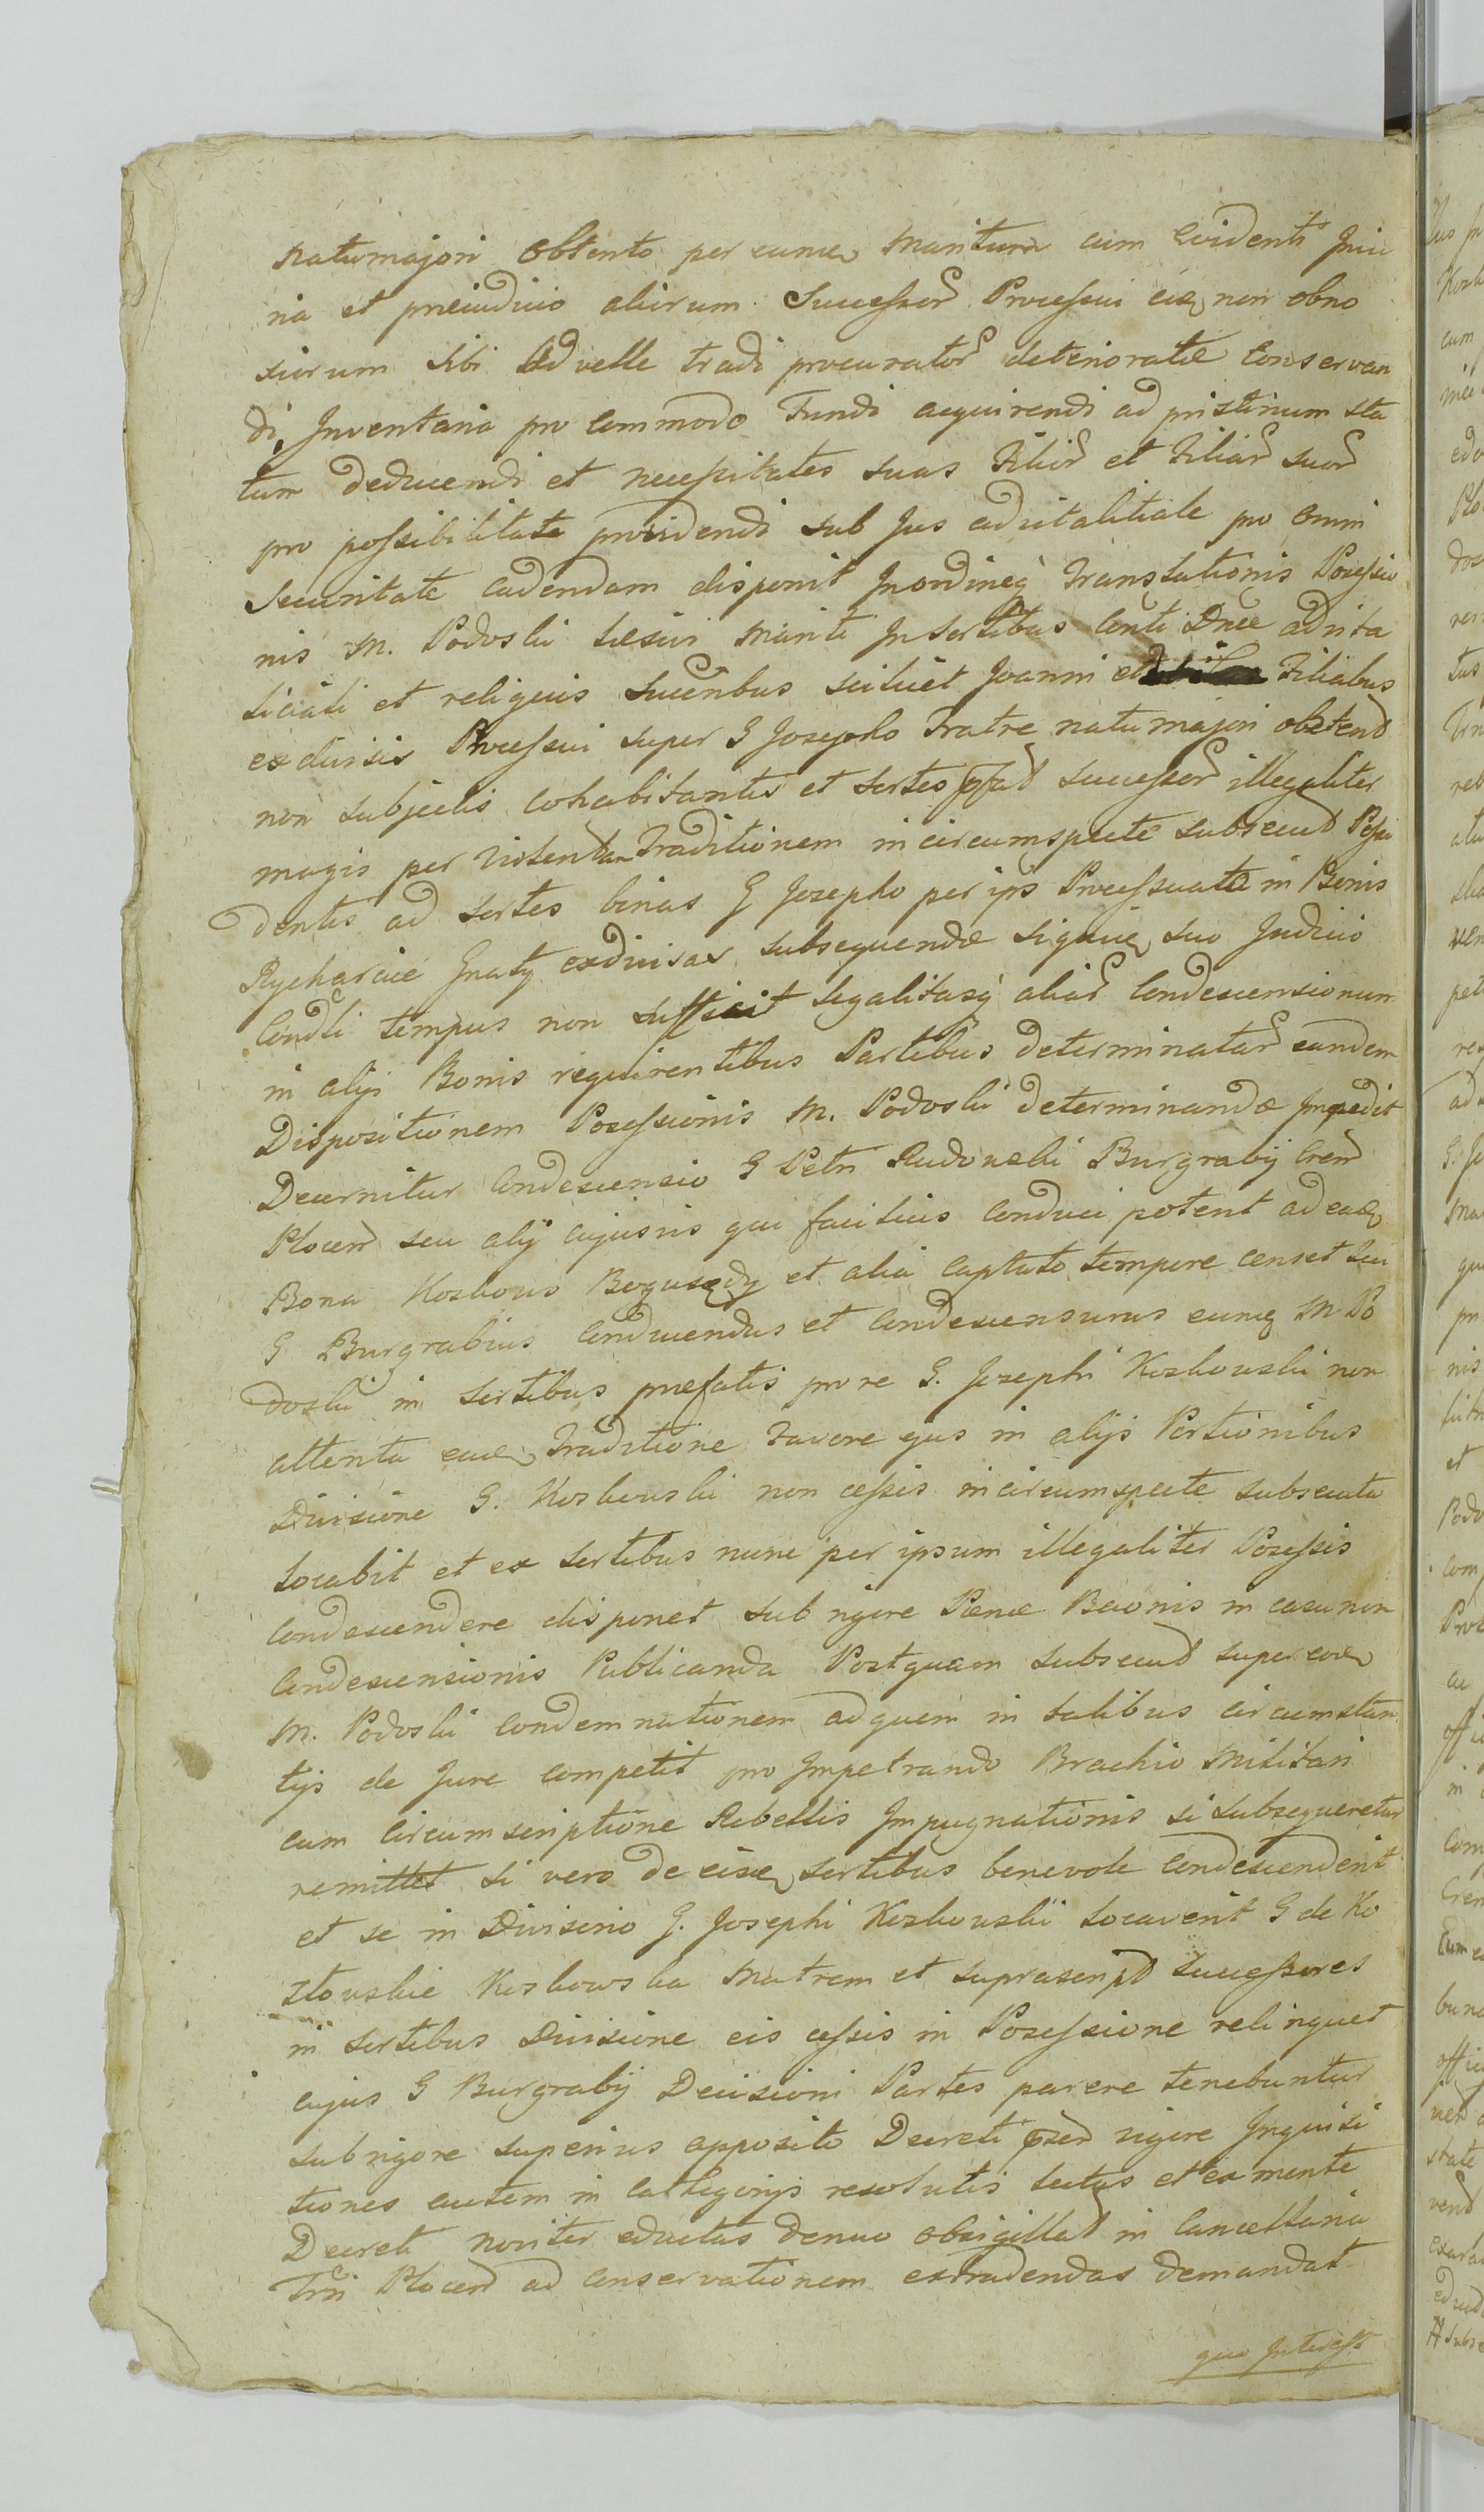 natumajori obtento per eunde maritum cum evidenti Jniu
ria et preiudicio aliorum Successor Processui eidem non obno
xiorum sibi advelle tradi procurator deterioratæ conservan
di Jnventaria pro commodo Fundi acquirendi ad pristinum sta
tum deducendi et necessitates suas Filior et Filiar suor
pro possibilitate providendi sub Jus advitalitiale pro omni
securitate cadendam disponit Jnordineq translationis Possessio
nis M. Podoski Jn sortibus Dnæ advita
liciali et reliquis scilicet Joanni et Filiabus
exdivisis Processui super G Josepho Fratre natu majori obtend
non subjectis cohabitantis et sortes successor illegaliter
magis per violentam Traditionem incircumspecte subsecut Possi
dentis ad sortes binas G Josepho per ips Processuatæ in Bonis
Rycharcie Gnaty exdivisas subsequendæ suo Judicio
Condli tempus non sufficit legalitasq aliar Condescensionum
in alijs Bonis requirentibus Partibus determinatar eandem
Dispositionem Possessionis M. Podoski determinandæ Jmpedit
Decernitur Condescensio G Petri Rudowski Burgrabij Cren
Plocen seu alij cujusvis qui facilius conduci poterit ad eade
Bona Kozlowo Bogusędy et alia captato tempore censet seu
G Burgrabius conducendus et condescensurus eunq M Po
doski in sortibus præfatis pro re G. Josephi Kozlowski non
attenta eade Traditione Favore ejus in alijs Portionibus
Divisione G. Kozlowski non cessis incircumspecte subsecuta
locabit et ex sortibus nunc per ipsum illegaliter Possessis
condescendere disponet sub rigore Pænæ Bannis in casu non
Condescensionis Publicanda Postquam subsecut super eode
M. Podoski condemnationem adquem in talibus circumstan
tijs de Jure competit pro Jmpetrando Brachio Militari
cum circumscriptione Rebellis Jmpugnationis si subsequeretur
remittet si vero de eisde sortibus benevole condescenderit
et se in Divisorio G. Josephi Kozlowski locaverit G de Ko
złowskie Kozlowska Matrem et suprascript successores
in sortibus Divisione eis cessis in Possessione relinquet
cujus G Burgrabij Decisioni Partes parere tenebuntur
sub rigore superius apposito Decreti vigore Jnquisi
tiones autem in cathegorijs resolutis et ex mente
Decreti noviter eductas denuo obsigillad in Cancellaria
Plocen ad conservationem extradendas demandat
quo Jnteresse